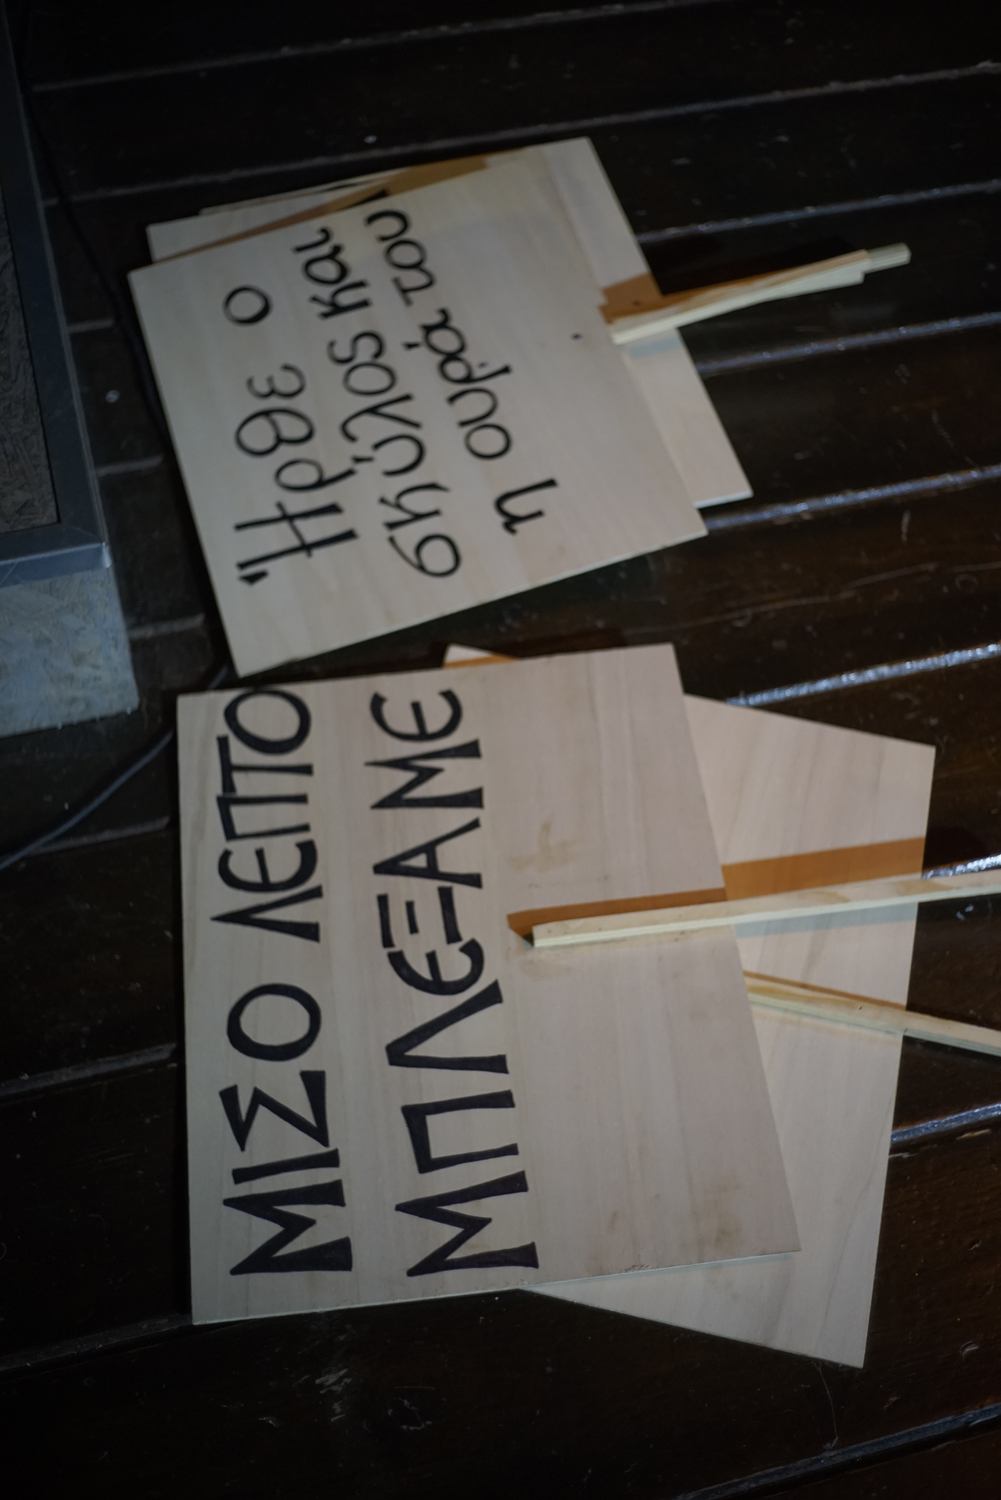 Ήρθε ο
σκύλος και
η ουρά του
ΜΙΣΟ ΛΕΠΤΟ
ΜΠΛΕΞΑΜΕ